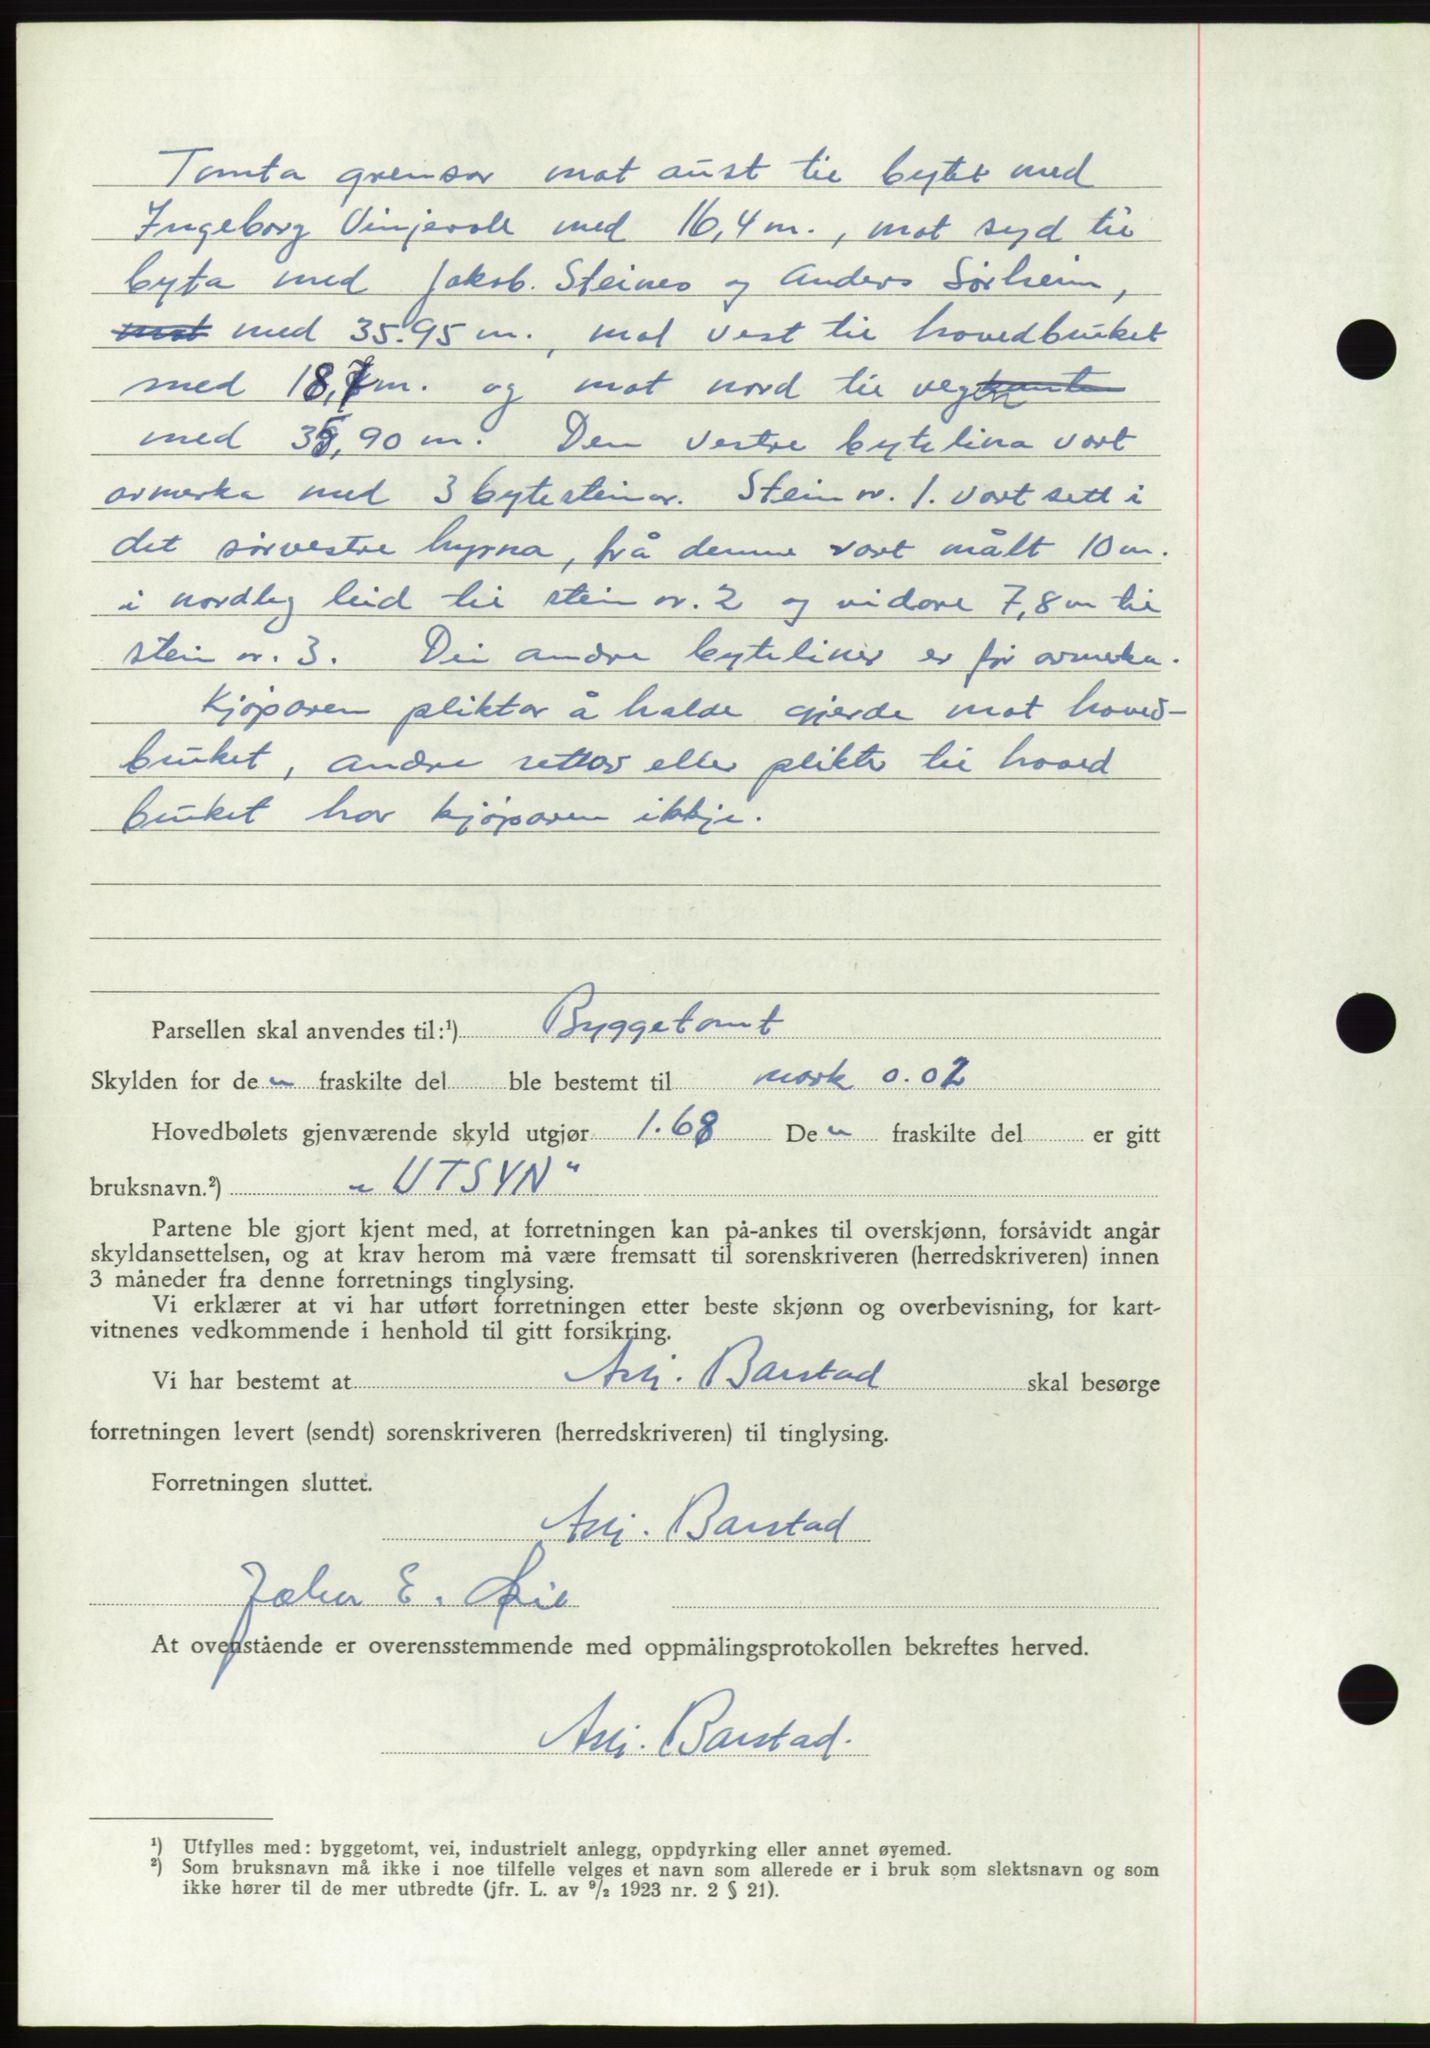 Tomta grensar mot aust til bytet med
Ingeborg Vinjevoll med 16,4 m., mot syd til
byta med Jakob. Steines og Anders Sørheim,
mot med 35.95 m., mot vest til hovedbruket
med 18,7 m. og mot nord til vegkanten
med 35,90 m. Den vestre bytelina vart
avmerka med 3 bytesteinar. Stein nr. 1. vart sett i
det sørvestre hyrna, frå denne vart målt 10 m.
i nordleg leid til stein nr. 2 og vidare 7,8 m til
stein nr. 3. Dei andre byteliner er før avmerka.
Kjøparen pliktar å halde gjerde mot hoved-
bruket, andre rettar eller plikter til hoved
bruket har kjøparen ikkje.
Parsellen skal anvendes til:¹) Byggetomt
Skylden for de n fraskilte del ble bestemt til mark 0.02
Hovedbølets gjenværende skyld utgjør 1.68 De n fraskilte del er gitt
bruksnavn.²) „UTSYN"
Partene ble gjort kjent med, at forretningen kan på-ankes til overskjønn, forsåvidt angår
skyldansettelsen, og at krav herom må være fremsatt til sorenskriveren (herredskriveren) innen
3 måneder fra denne forretnings tinglysing.
Vi erklærer at vi har utført forretningen etter beste skjønn og overbevisning, for kart-
vitnenes vedkommende i henhold til gitt forsikring.
Vi har bestemt at Asbj. Barstad skal besørge
forretningen levert (sendt) sorenskriveren (herredskriveren) til tinglysing.
Forretningen sluttet.
Asbj. Barstad
E.
At ovenstående er overensstemmende med oppmålingsprotokollen bekreftes herved.
Asbj. Barstad.
¹) Utfylles med: byggetomt, vei, industrielt anlegg, oppdyrking eller annet øyemed.
²) Som bruksnavn må ikke i noe tilfelle velges et navn som allerede er i bruk som slektsnavn og som
ikke hører til de mer utbredte (jfr. L. av ⁹/₂ 1923 nr. 2 § 21).